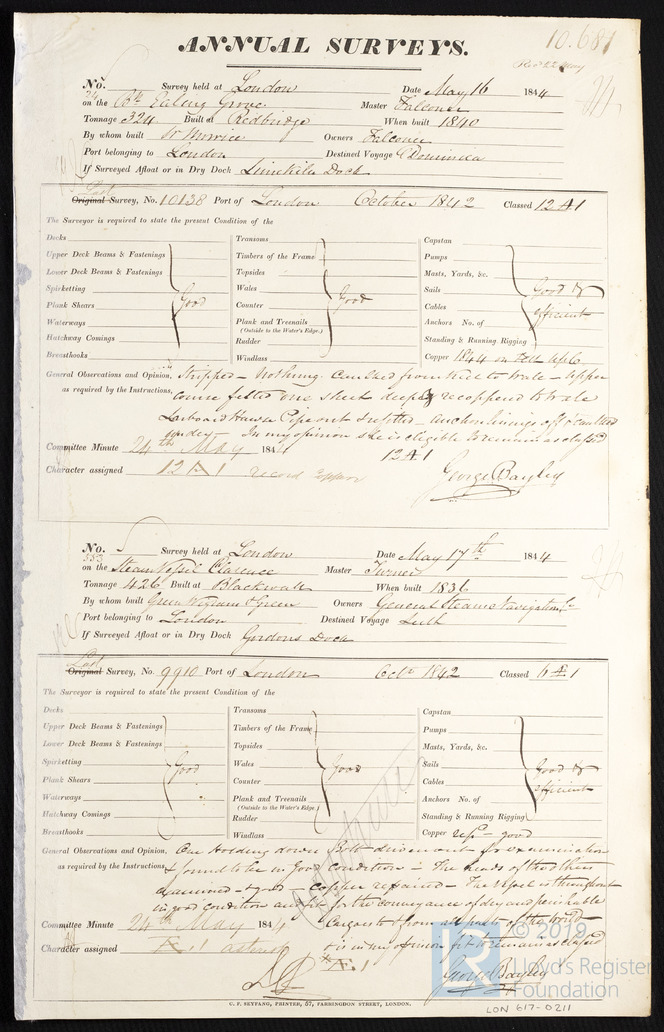 ANNUAL SURVEYS.
10.681
No. 24 Survey held at London Date May 16 1844
on the Bk Ealing Grove Master Falconer
Tonnage 324 Built at Redbridge When built 1840
By whom built Owners Falconer
Port belonging to London Destined Voyage Dominica
If Surveyed Afloat or in Dry Dock Limekiln Dock
Last
Original Survey, No. 10138 Port of London October 1842 Classed 12 A 1
The Surveyor is required to state the present Condition of the
Decks Transoms Capstan
Upper Deck Beams & Fastenings Timbers of the Frame Pumps
Lower Deck Beams & Fastenings Topsides Masts, Yards, &c.
Spirketting Wales Sails Good &
Plank Shears Good Counter Good Cables efficient
Waterways Plank and Treenails Anchors No. of
(Outside to the Water's Edge.)
Hatchway Comings Rudder Standing & Running Rigging
Breasthooks Windlass Copper 1844 on felt
General Observations and Opinion, Stripped – Nothing. Caulked from Keel to Wale – Upper
as required by the Instructions, course felted one sheet deep & recoppered to Wale
Larboard Hawse Pipe out & refitted – anchor linings off & caulked
under – In my opinion she is eligible to remain as classed
Committee Minute 24th May 1844 12 A 1
Character assigned 12 A 1 record
George Bayley
No. 553 Survey held at London Date May 17th 1844
on the Steam Vessel Clarence Master Turner
Tonnage 426 Built at Blackwall When built 1836
By whom built Green Wigrams & Green Owners General Steam Navigation Co
Port belonging to London Destined Voyage Leith
If Surveyed Afloat or in Dry Dock Gordons Dock
Last
Original Survey, No. 9910 Port of London Octr 1842 Classed 6 Æ 1
The Surveyor is required to state the present Condition of the
Decks Transoms Capstan
Upper Deck Beams & Fastenings Timbers of the Frame Pumps
Lower Deck Beams & Fastenings Topsides Masts, Yards, &c.
Spirketting Good Wales Good Sails Good &
Plank Shears Counter Cables efficient
Waterways Plank and Treenails Anchors No. of
(Outside to the Water's Edge.)
Hatchway Comings Rudder Standing & Running Rigging
Breasthooks Windlass Copper repd – good
General Observations and Opinion, One Holding down Bolt driven out for examination
as required by the Instructions, & found to be in Good condition – The heads of the others
examined & good – Copper repaired – The Vessel is throughout
in good condition and fit for the conveyance of dry and perishable
Committee Minute 24th May 1844 Cargoes to & from all parts of the World –
Character assigned Æ 1 & is in my opinion fit to remain as classed
Æ 1
George Bayley
C. F. SEYFANG, PRINTER, 57, FARRINGDON STREET, LONDON.
© 2019
Lloyd's Register
Foundation
LON 617-0211